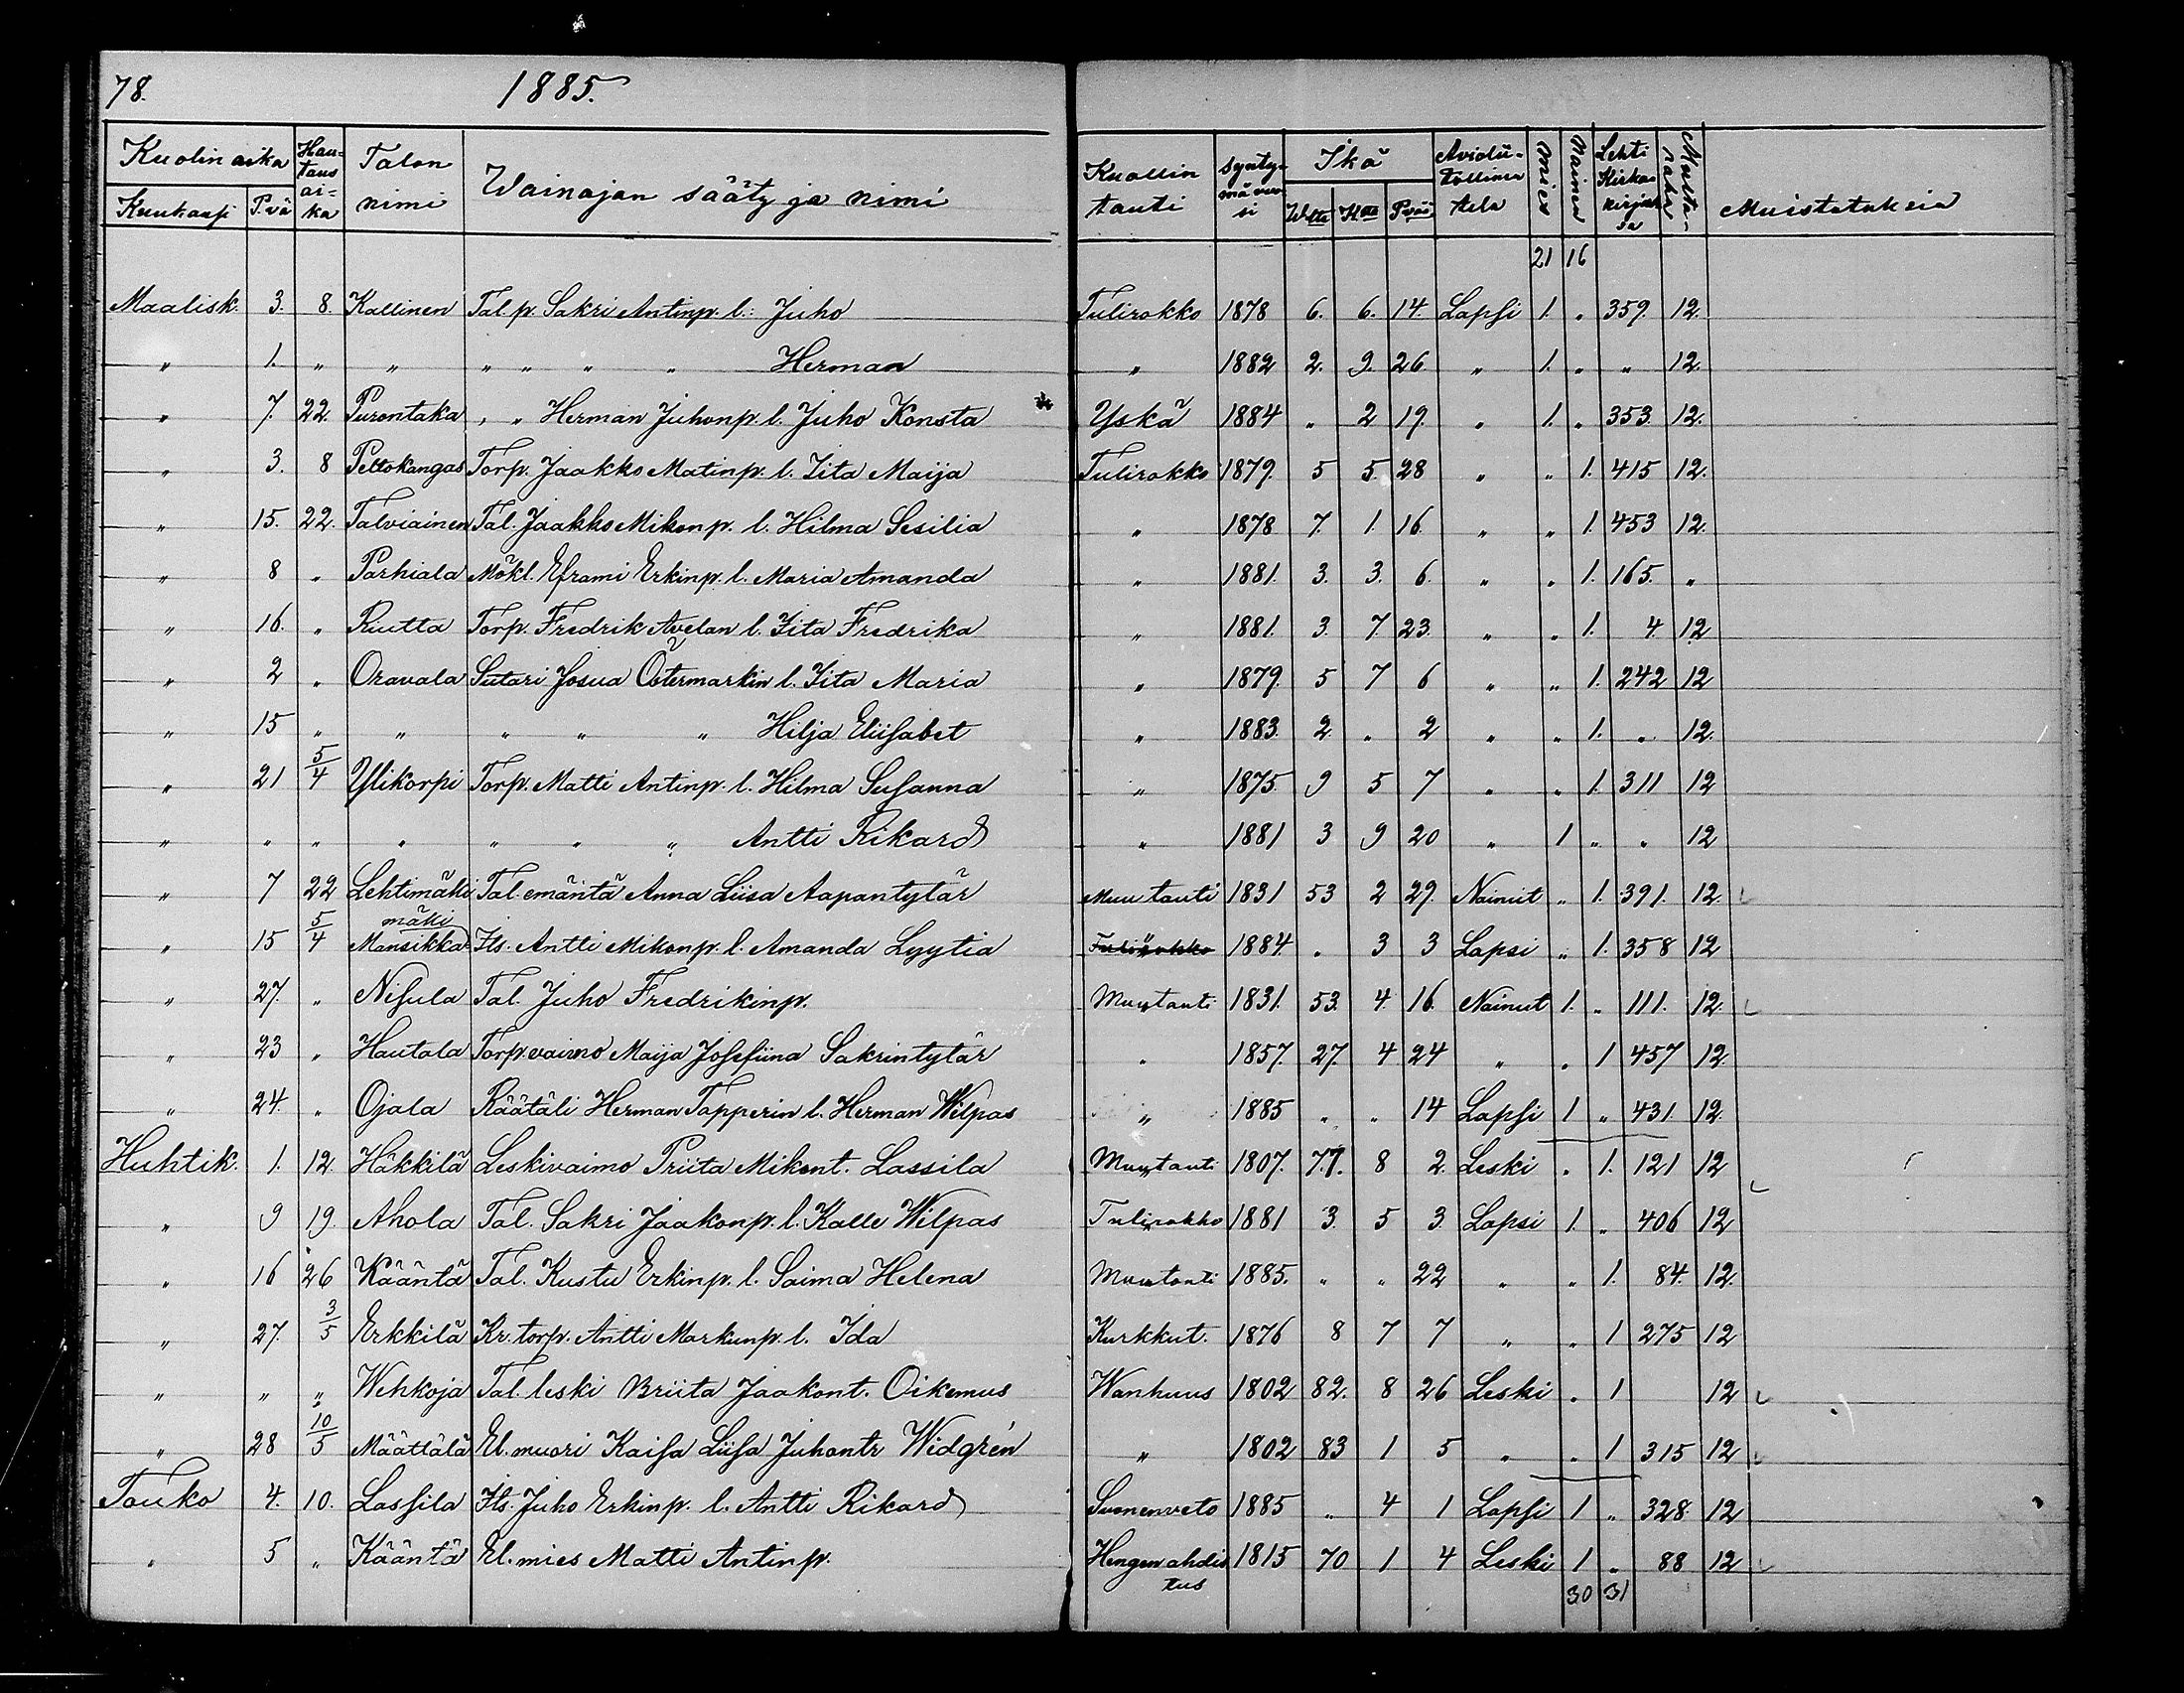 78. 1885.
Kuolin aika Hau=taus ai=ka Talon nimi Wainajan sääty ja nimi Kuollin tauti synty=mä vuosi Ikä Aviolii=tollinen tila Mies Nainen Lehti Kirkon kirjassa Multa raha Muistutuksia
Kuukausi P.vä W.tta K.tta P.vää
21 16
Maalisk. 3. 8. Kallinen Tal. p. Sakri Antinp. l.: Juho Tulirokko 1878 6. 6. 14. Lapsi 1. " 359. 12.
" 1. " " " " " " Herman " 1882 2. 9. 26. " 1. " " 12.
" 7. 22. Purontaka " " Herman Juhonp. l. Juho Konsta Yskä 1884 " 2 19. " 1. " 353. 12.
" 3. 8 Peltokangas Torp. Jaakko Matinp. l. Iita Maija Tulirokko 1879. 5 5. 28 " " 1. 415 12.
" 15. 22. Talviainen Tal. Jaakko Mikonp. l. Hilma Sesilia " 1878 7. 1. 16. " " 1. 453 12.
" 8 " Parhiala Mökl. Eframi Erkinp. l. Maria Amanda " 1881. 3. 3. 6. " " 1. 165. "
" 16. " Riutta Torp. Fredrik Avelan l. Iita Fredrika " 1881. 3. 7. 23. " " 1. 4. 12
" 2 " Oravala Sutari Josua Östermarkin l. Iita Maria " 1879. 5 7 6 " " 1. 242 12
" 15 " " " " " Hilja Eliisabet " 1883. 2. " 2 " " 1. " 12.
" 21 5/4 Ylikorpi Torp. Matti Antinp. l. Hilma Susanna " 1875. 9 5 7 " " 1. 311 12
" " " " " " " Antti Rikard " 1881 3 9 20 " 1 " " 12
" 7 22 Lehtimäki Tal. emäntä Anna Liisa Aapantytär Muu tauti 1831 53 2 29. Nainut " 1. 391. 12.
" 15 5/4 Mansikkamäki Its. Antti Mikonp. l. Amanda Lyytia Tulirokko 1884. " 3 3 Lapsi " 1. 358 12
" 27. " Nisula Tal. Juho Fredrikinp. Muu tauti 1831. 53. 4. 16. Nainut 1. " 111. 12.
" 23 " Hautala Torp. vaimo Maija Josefiina Sakrintytär " 1857. 27. 4 24 " " 1 457 12.
" 24. " Ojala Räätäli Herman Tapperin l. Herman Wilpas " 1885 " " 14 Lapsi 1 " 431. 12.
Huhtik. 1. 12. Häkkilä Leskivaimo Priita Mikont. Lassila Muu tauti 1807. 77. 8 2. Leski " 1. 121 12
" 9 19. Ahola Tal. Sakri Jaakonp. l. Kalle Wilpas Tulirokko 1881 3. 5 3. Lapsi 1. " 406 12
" 16 26 Kääntä Tal. Kustu Erkinp. l. Saima Helena Muu tauti 1885. " " 22 " " 1. 84. 12.
" 27. 3/5 Erkkilä Kr. torp. Antti Markunp. l. Ida Kurkkut. 1876 8 7 7 " " 1 275 12
" " " Wehkoja Tal. leski Briita Jaakont. Oikemus Wanhuus 1802 82. 8 26 Leski " 1 12
" 28 10/5 Määttälä El. muori Kaisa Liisa Juhontr Widgrén " 1802 83 1 5 " " 1 315 12
Touko 4. 10. Lassila Its. Juho Erkinp. l. Antti Rikard Suonenveto 1885 " 4 1 Lapsi 1 " 328. 12
" 5 " Kääntä El. mies Matti Antinp. Hengenahdistus 1815 70 1 4 Leski 1 " 88 12
30 31